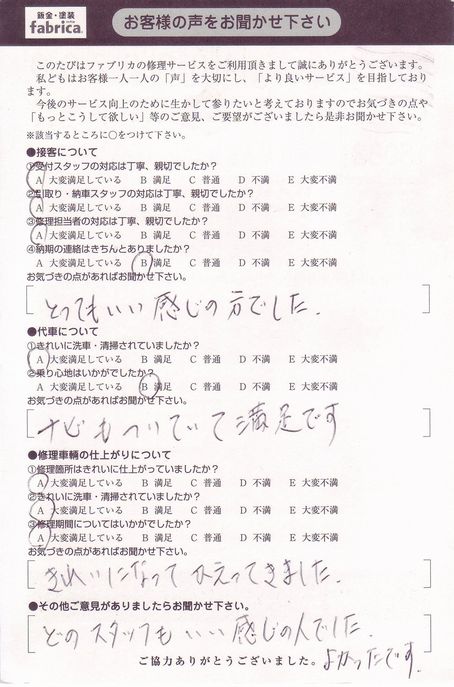 鈑金・塗装
fabrica.
お客様の声をお聞かせ下さい
このたびはファブリカの修理サービスをご利用頂きまして誠にありがとうございます。
私どもはお客様一人一人の「声」を大切にし、「より良いサービス」を目指しており
ます。
今後のサービス向上のために生かして参りたいと考えておりますのでお気づきの点や
「もっとこうして欲しい」等のご意見、ご要望がございましたら是非お聞かせ下さい。
※該当するところに○をつけて下さい。
●接客について
①受付スタッフの対応は丁寧、親切でしたか？
A 大変満足している B 満足 C 普通 D 不満 E 大変不満
②引取り・納車スタッフの対応は丁寧、親切でしたか？
A 大変満足している B 満足 C 普通 D 不満 E 大変不満
③修理担当者の対応は丁寧、親切でしたか？
A 大変満足している B 満足 C 普通 D 不満 E 大変不満
④納期の連絡はきちんとありましたか？
A 大変満足している B 満足 C 普通 D 不満 E 大変不満
お気づきの点があればお聞かせ下さい。
とってもいい感じの方でした.
●代車について
①きれいに洗車・清掃されていましたか？
A 大変満足している B 満足 C 普通 D 不満 E 大変不満
②乗り心地はいかがでしたか？
A 大変満足している B 満足 C 普通 D 不満 E 大変不満
お気づきの点があればお聞かせ下さい。
ナビもついていて満足です
●修理車輛の仕上がりについて
①修理箇所はきれいに仕上がっていましたか？
A 大変満足している B 満足 C 普通 D 不満 E 大変不満
②きれいに洗車・清掃されていましたか？
A 大変満足している B 満足 C 普通 D 不満 E 大変不満
③修理期間についてはいかがでしたか？
A 大変満足している B 満足 C 普通 D 不満 E 大変不満
お気づきの点があればお聞かせ下さい。
きれいになって かえってきました.
●その他ご意見がありましたらお聞かせ下さい。
どのスタッフもいい感じの人でした.
よかったです.
ご協力ありがとうございました。